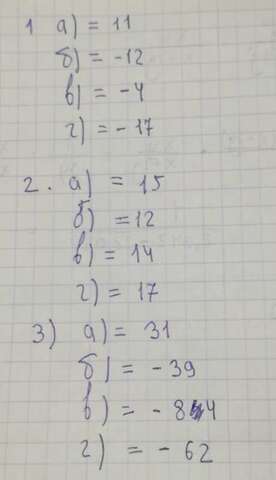 1 а) = 11
б) = -12
в) = -4
г) = - 17
2. а) = 15
б) = 12
в) = 14
г) = 17
3) а) = 31
б) = - 39
в) = - 84
г) = - 62